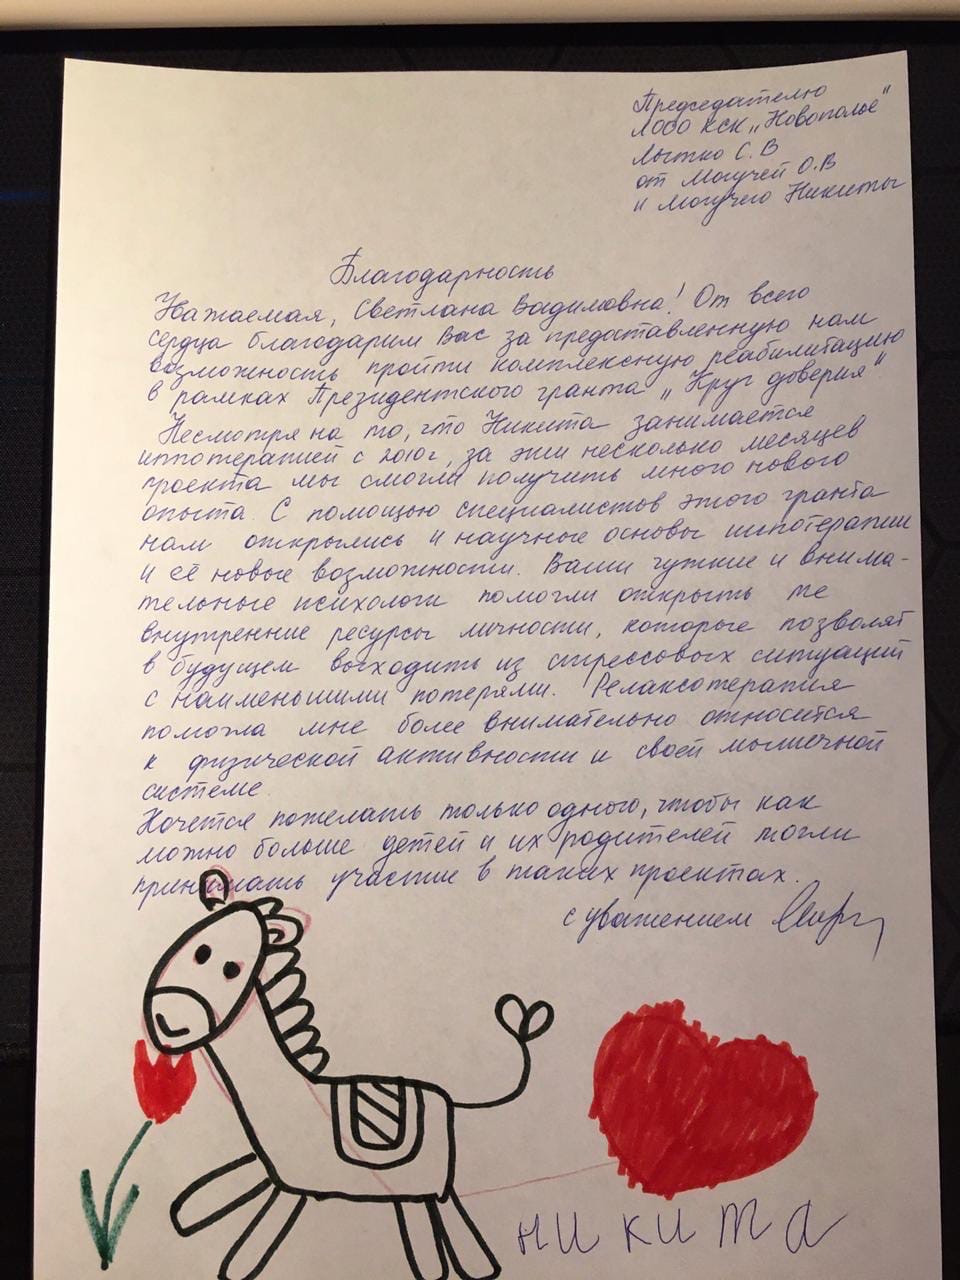 Председателю
ЛООО КСК „Новополье"
Лытко С.В
от Могучей О.В
и Могучего Никиты
Благодарность
Уважаемая, Светлана Вадимовна! От всего
сердца благодарим Вас за предоставленную нам
возможность пройти комплексную реабилитацию
в рамках Президентского гранта „Круг доверия"
Несмотря на то, что Никита занимается
иппотерапией с 2010г, за эти несколько месяцев
проекта мы смогли получить много нового
опыта. С помощью специалистов этого гранта
нам открылись и научные основы иппотерапии
и её новые возможности. Ваши чуткие и внима-
тельные психологи помогли открыть те
внутренние ресурсы личности, которые позволят
в будущем выходить из стрессовых ситуаций
с наименьшими потерями. Релаксотерапия
помогла мне более внимательно относится
к физической активности и своей мышечной
системе.
Хочется пожелать только одного, чтобы как
можно больше детей и их родителей могли
принимать участие в таких проектах.
с уважением
никита